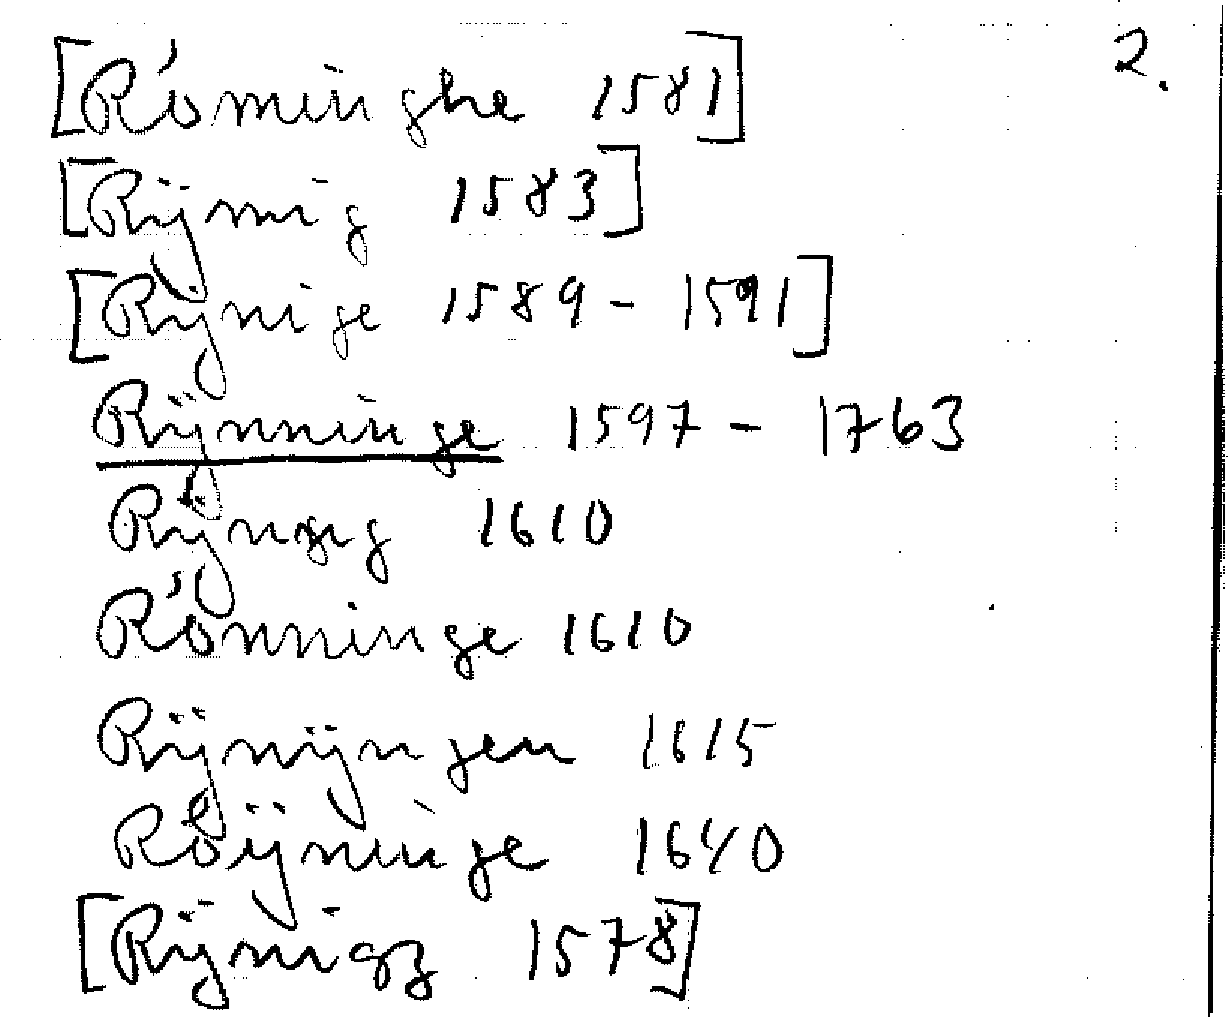 2.
[Röminghe 1581]
[Rijmig 1583]
[Rijnige 1589 - 1591]
Rijnninge 1597 - 1763
1610
Rönninge 1610
Rijnijngen 1615
Röijninge 1640
[Rijnigz 1578]